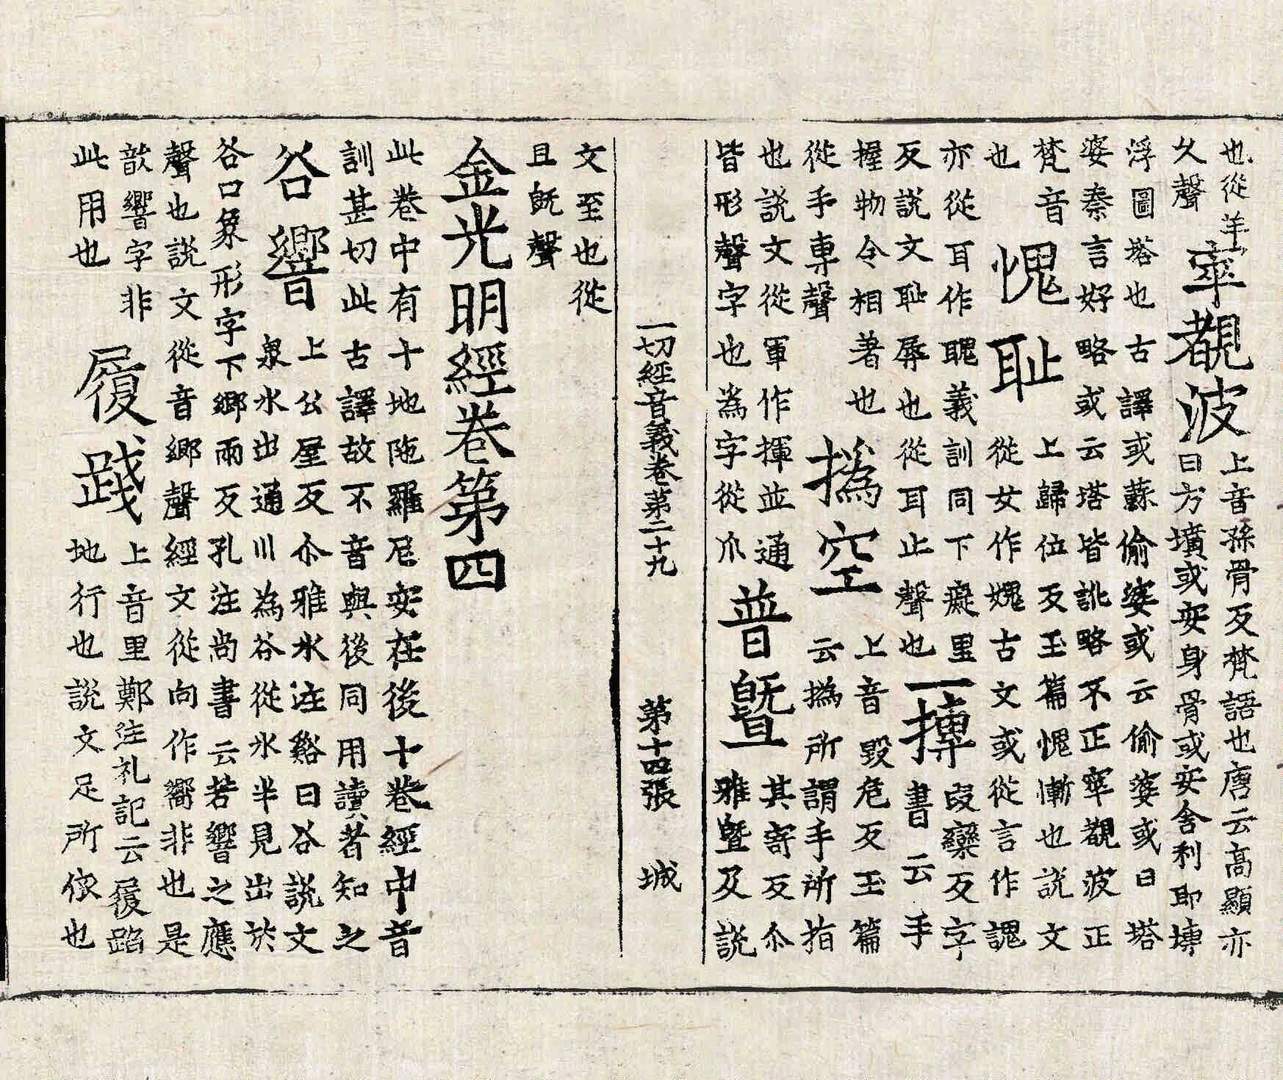 也從羊
久聲
窣覩波
上音孫骨反梵語也唐云高顯亦
曰方墳或安身骨或安舍利即塼
浮圖塔也古譯或蘇偷婆或云偷婆或曰塔
婆秦言好略或云塔皆訛略不正窣覩波正
梵音
也
愧恥
上歸位反玉篇愧慚也説文
從女作媿古文或從言作謉
亦從耳作聭義訓同下癡里
反説文恥辱也從耳止聲也
一摶
段欒反字
書云手
握物令相著也
從手專聲
撝空
上音毀危反玉篇
云撝所謂手所指
也説文從軍作揮並通
皆形聲字也為字從爪
普曁
其寄反尒
雅曁及説
一切經音義卷第二十九 第十四張 城
文至也從
且旣聲
金光明經卷第四
此卷中有十地陁羅尼安在後十卷經中音
訓甚切此古譯故不音與後同用讀者知之
谷響
上公屋反尒雅水注谿曰谷説文
泉水出通川為谷從水半見出於
谷口象形字下鄉兩反孔注尚書云若響之應
聲也説文從音鄉聲經文從向作嚮非也是
歆響字非
此用也
履踐
上音里鄭注礼記云履蹈
地行也説文足所依也